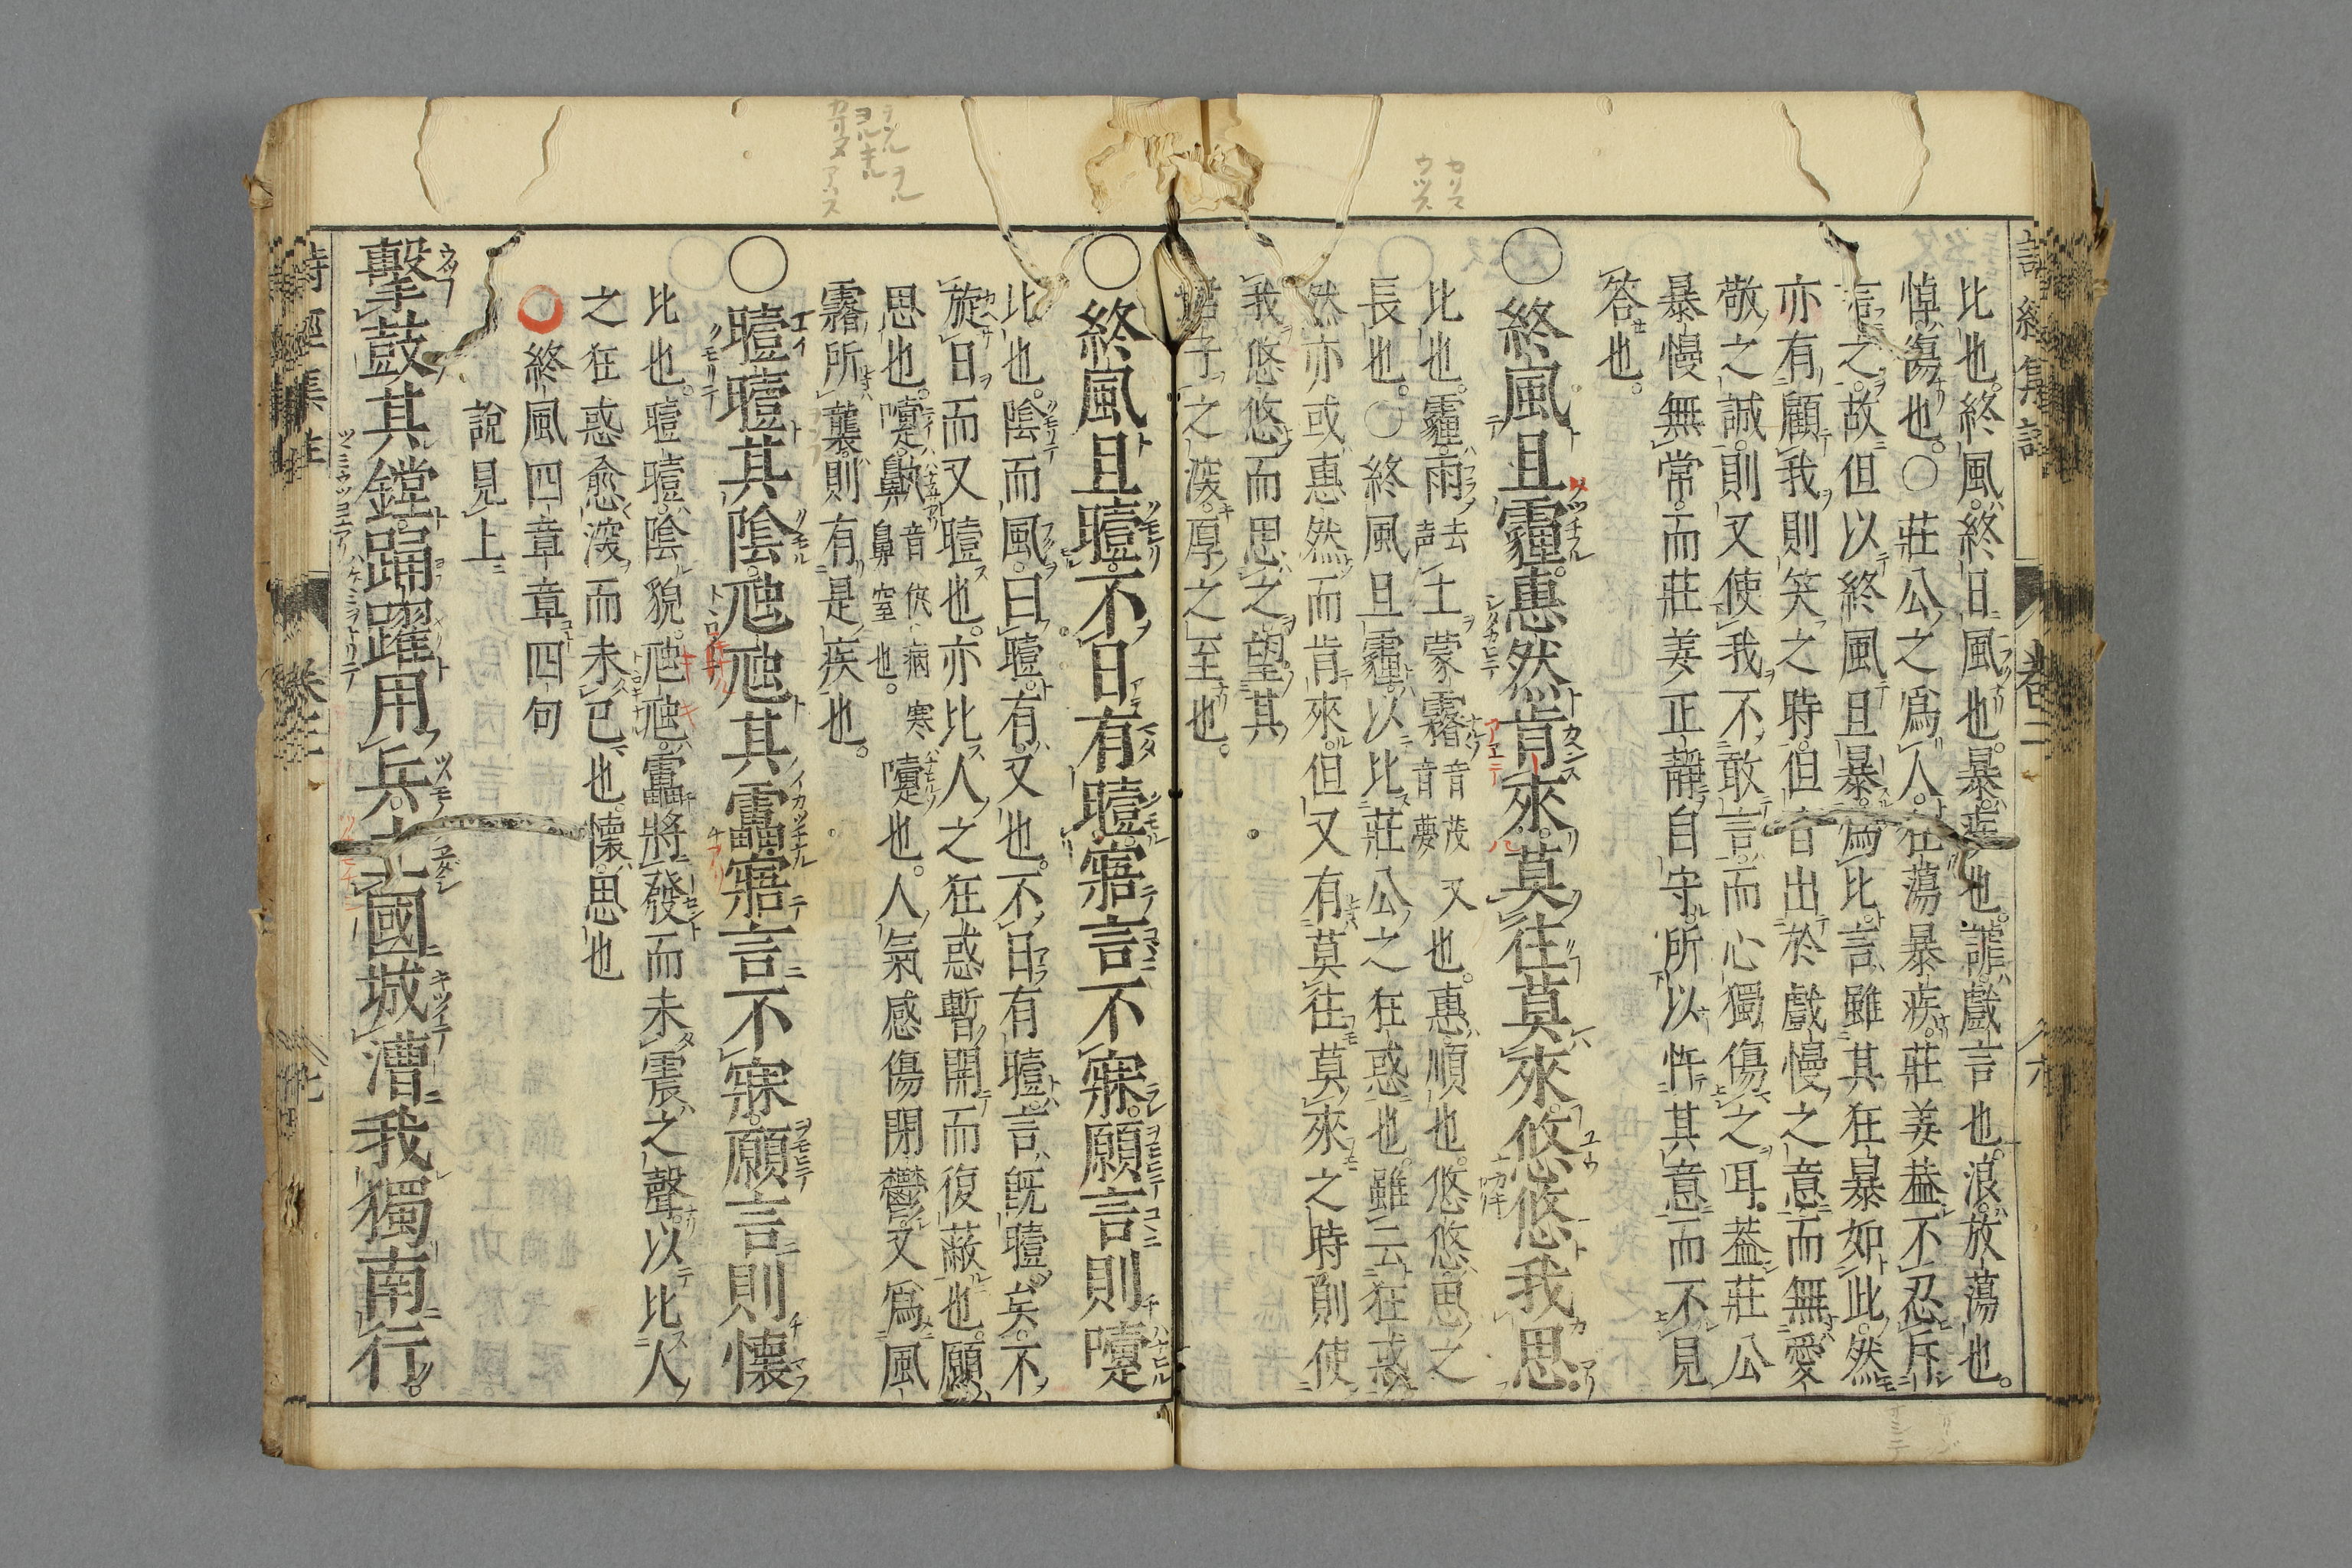 比也。終風。終日風也。暴。疾也。謔。戲言也。浪。放蕩也。
悼。傷也。〇莊公之爲人。狂蕩暴疾。莊姜葢不忍斥
言之。故但以終風且暴爲比。言雖其狂暴如此。然
亦有顧我則笑之時。但皆出於戲慢之意。而無愛
敬之誠。則又使我不敢言。而心獨傷之耳。葢莊公
暴慢無常。而莊姜正靜自守。所以忤其意。而不見
答也。
〇終風且霾。惠然肯來。莫往莫來。悠悠我思。
比也。霾。雨去声土蒙霧音茂音夢又也。惠。順也。悠悠。思之
長也。〇終風且霾。以比莊公之狂惑也。雖云狂惑。
然亦或惠然而肯來。但又有莫往莫來之時。則使
我悠悠而思之。望其
子之深。厚之至也。
〇終風且曀。不日有曀。寤言不寐。願言則嚏
比也。陰而風。曰曀。有。又也。不日有曀。言既曀矣。不
旋日而又曀也。亦比人之狂惑暫開而復蔽也。願。
思也。嚏。鼽音仇病寒鼻窒也。嚏也。人氣感傷閉鬱。又爲風
霧所襲。則有是疾也。
〇曀曀其陰。虺虺其靁。寤言不寐。願言則懷
比也。曀曀。陰貌。虺虺。靁將發而未震之聲。以比人
之狂惑愈深而未已也。懷。思也
〇終風四章章四句
說見上
擊鼓其鏜。踊躍用兵。土國城漕。我獨南行。